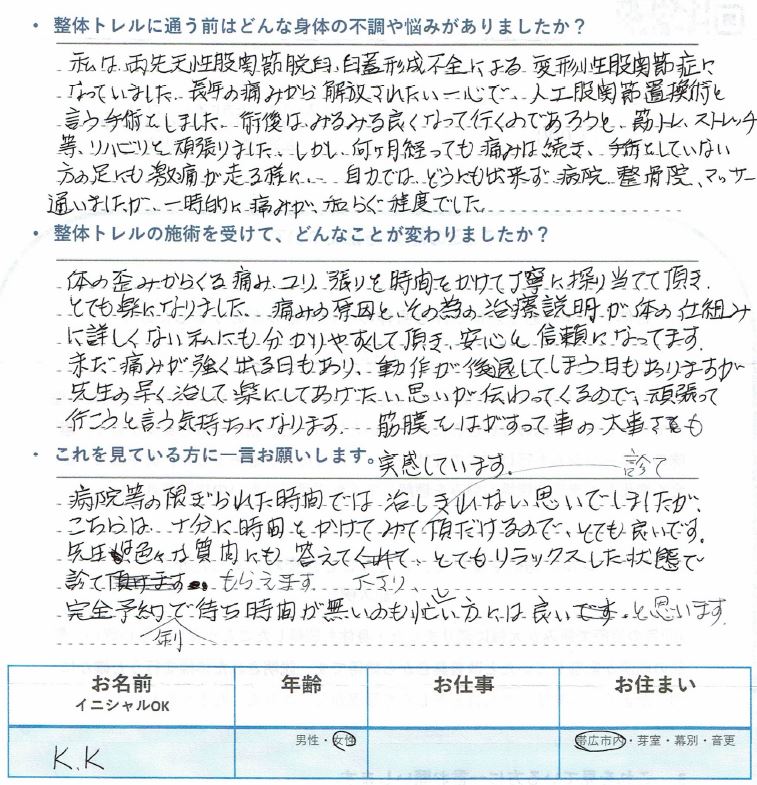 ・整体トレルに通う前はどんな身体の不調や悩みがありましたか？
私は、両先天性股関節脱臼、臼蓋形成不全による変形性股関節症に
なっていました。長年の痛みから解放されたい一心で、人工股関節置換術と
言う手術をしました。術後はみるみる良くなって行くのであろうと、筋トレ、ストレッチ
等、リハビリを頑張りました。しかし、何ヶ月経っても痛みは続き、手術をしていない
方の足にも激痛が走る様に… 自力ではどうにも出来ず病院、整骨院、マッサー
通いましたが、一時的に痛みが、和らぐ程度でした。
・整体トレルの施術を受けて、どんなことが変わりましたか？
体の歪みからくる痛み、コリ、張りを時間をかけて丁寧に探り当てて頂き、
とても楽になりました。痛みの原因と、その為の治療説明が体の仕組み
に詳しくない私にも分かりやすくして頂き、安心と信頼になってます。
未だ痛みが強く出る日もあり、動作が後退してしまう日もありますが
先生の早く治して楽にしてあげたい思いが伝わってくるので、頑張って
行こうと言う気持ちになります。筋膜をはがすって事の大事さも
実感しています。
・これを見ている方に一言お願いします。
病院等の限ぎられた時間では治しきれない思いでしましたが、
こちらは、十分に時間をかけて診て頂だけるので、とても良いです。
先生は色々な質問にも答えて下さり、とてもリラックスした状態で
診てもらえます。
完全予約制で待ち時間が無いのも忙しい方には良いと思います。
お名前 年齢 お仕事 お住まい
イニシャルOK
K.K 男性・女性 帯広市内・芽室・幕別・音更